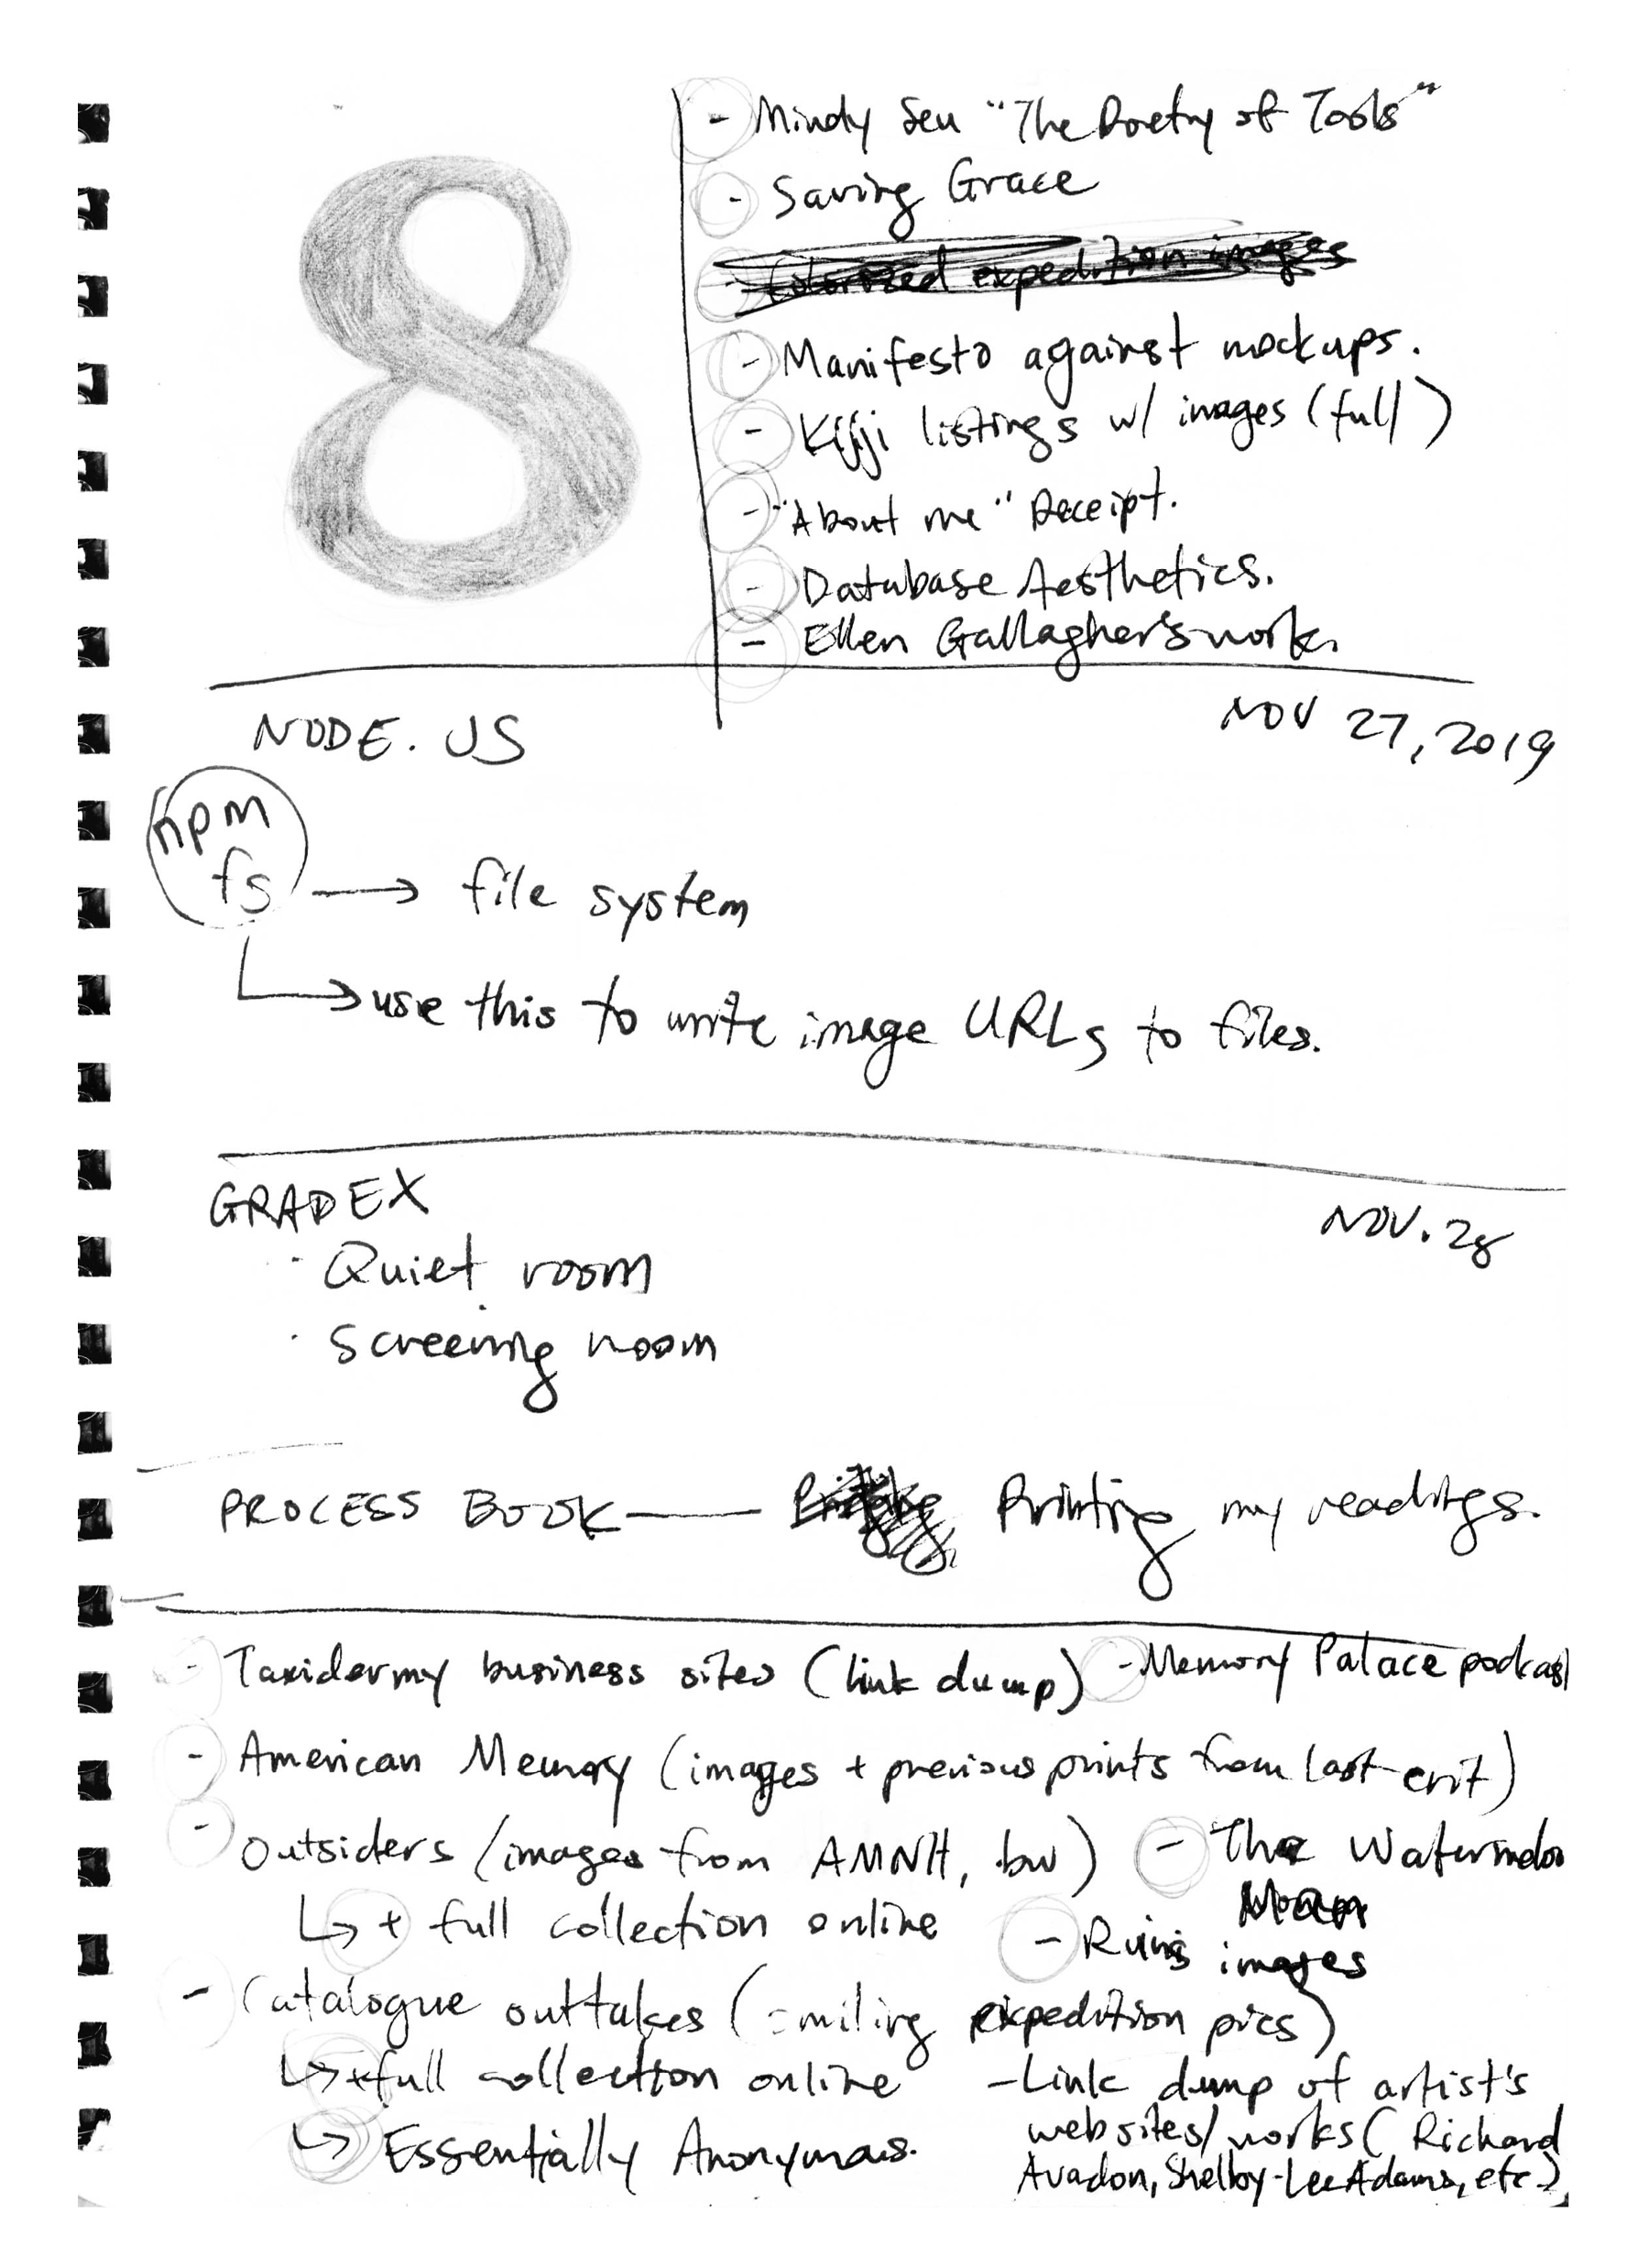 8
- Mindy Seu "The Poetry of Tools"
- Saving Grace
- Colorized expedition images
- Manifesto against mockups.
- Kijiji listings w/ images (full)
- "About me" Receipt.
- Database Aesthetics.
- Ellen Gallagher's work.
NODE.JS
NOV 27, 2019
npm
fs → file system
↳ use this to write image URLs to files.
GRADEX
NOV. 28
· Quiet room
· Screening room
PROCESS BOOK — Printing my readings.
- Taxidermy business sites (link dump)
- Memory Palace podcast
- American Memory (images + previous prints from last crit)
- Outsiders (images from AMNH, bw)
↳ + full collection online
- The Watermelon
Man
- Ruins images
- Catalogue outtakes (smiling expedition pics)
↳ + full collection online
↳ Essentially Anonymous.
- Link dump of artist's
websites/works (Richard
Avadon, Shelby-Lee Adams, etc.)